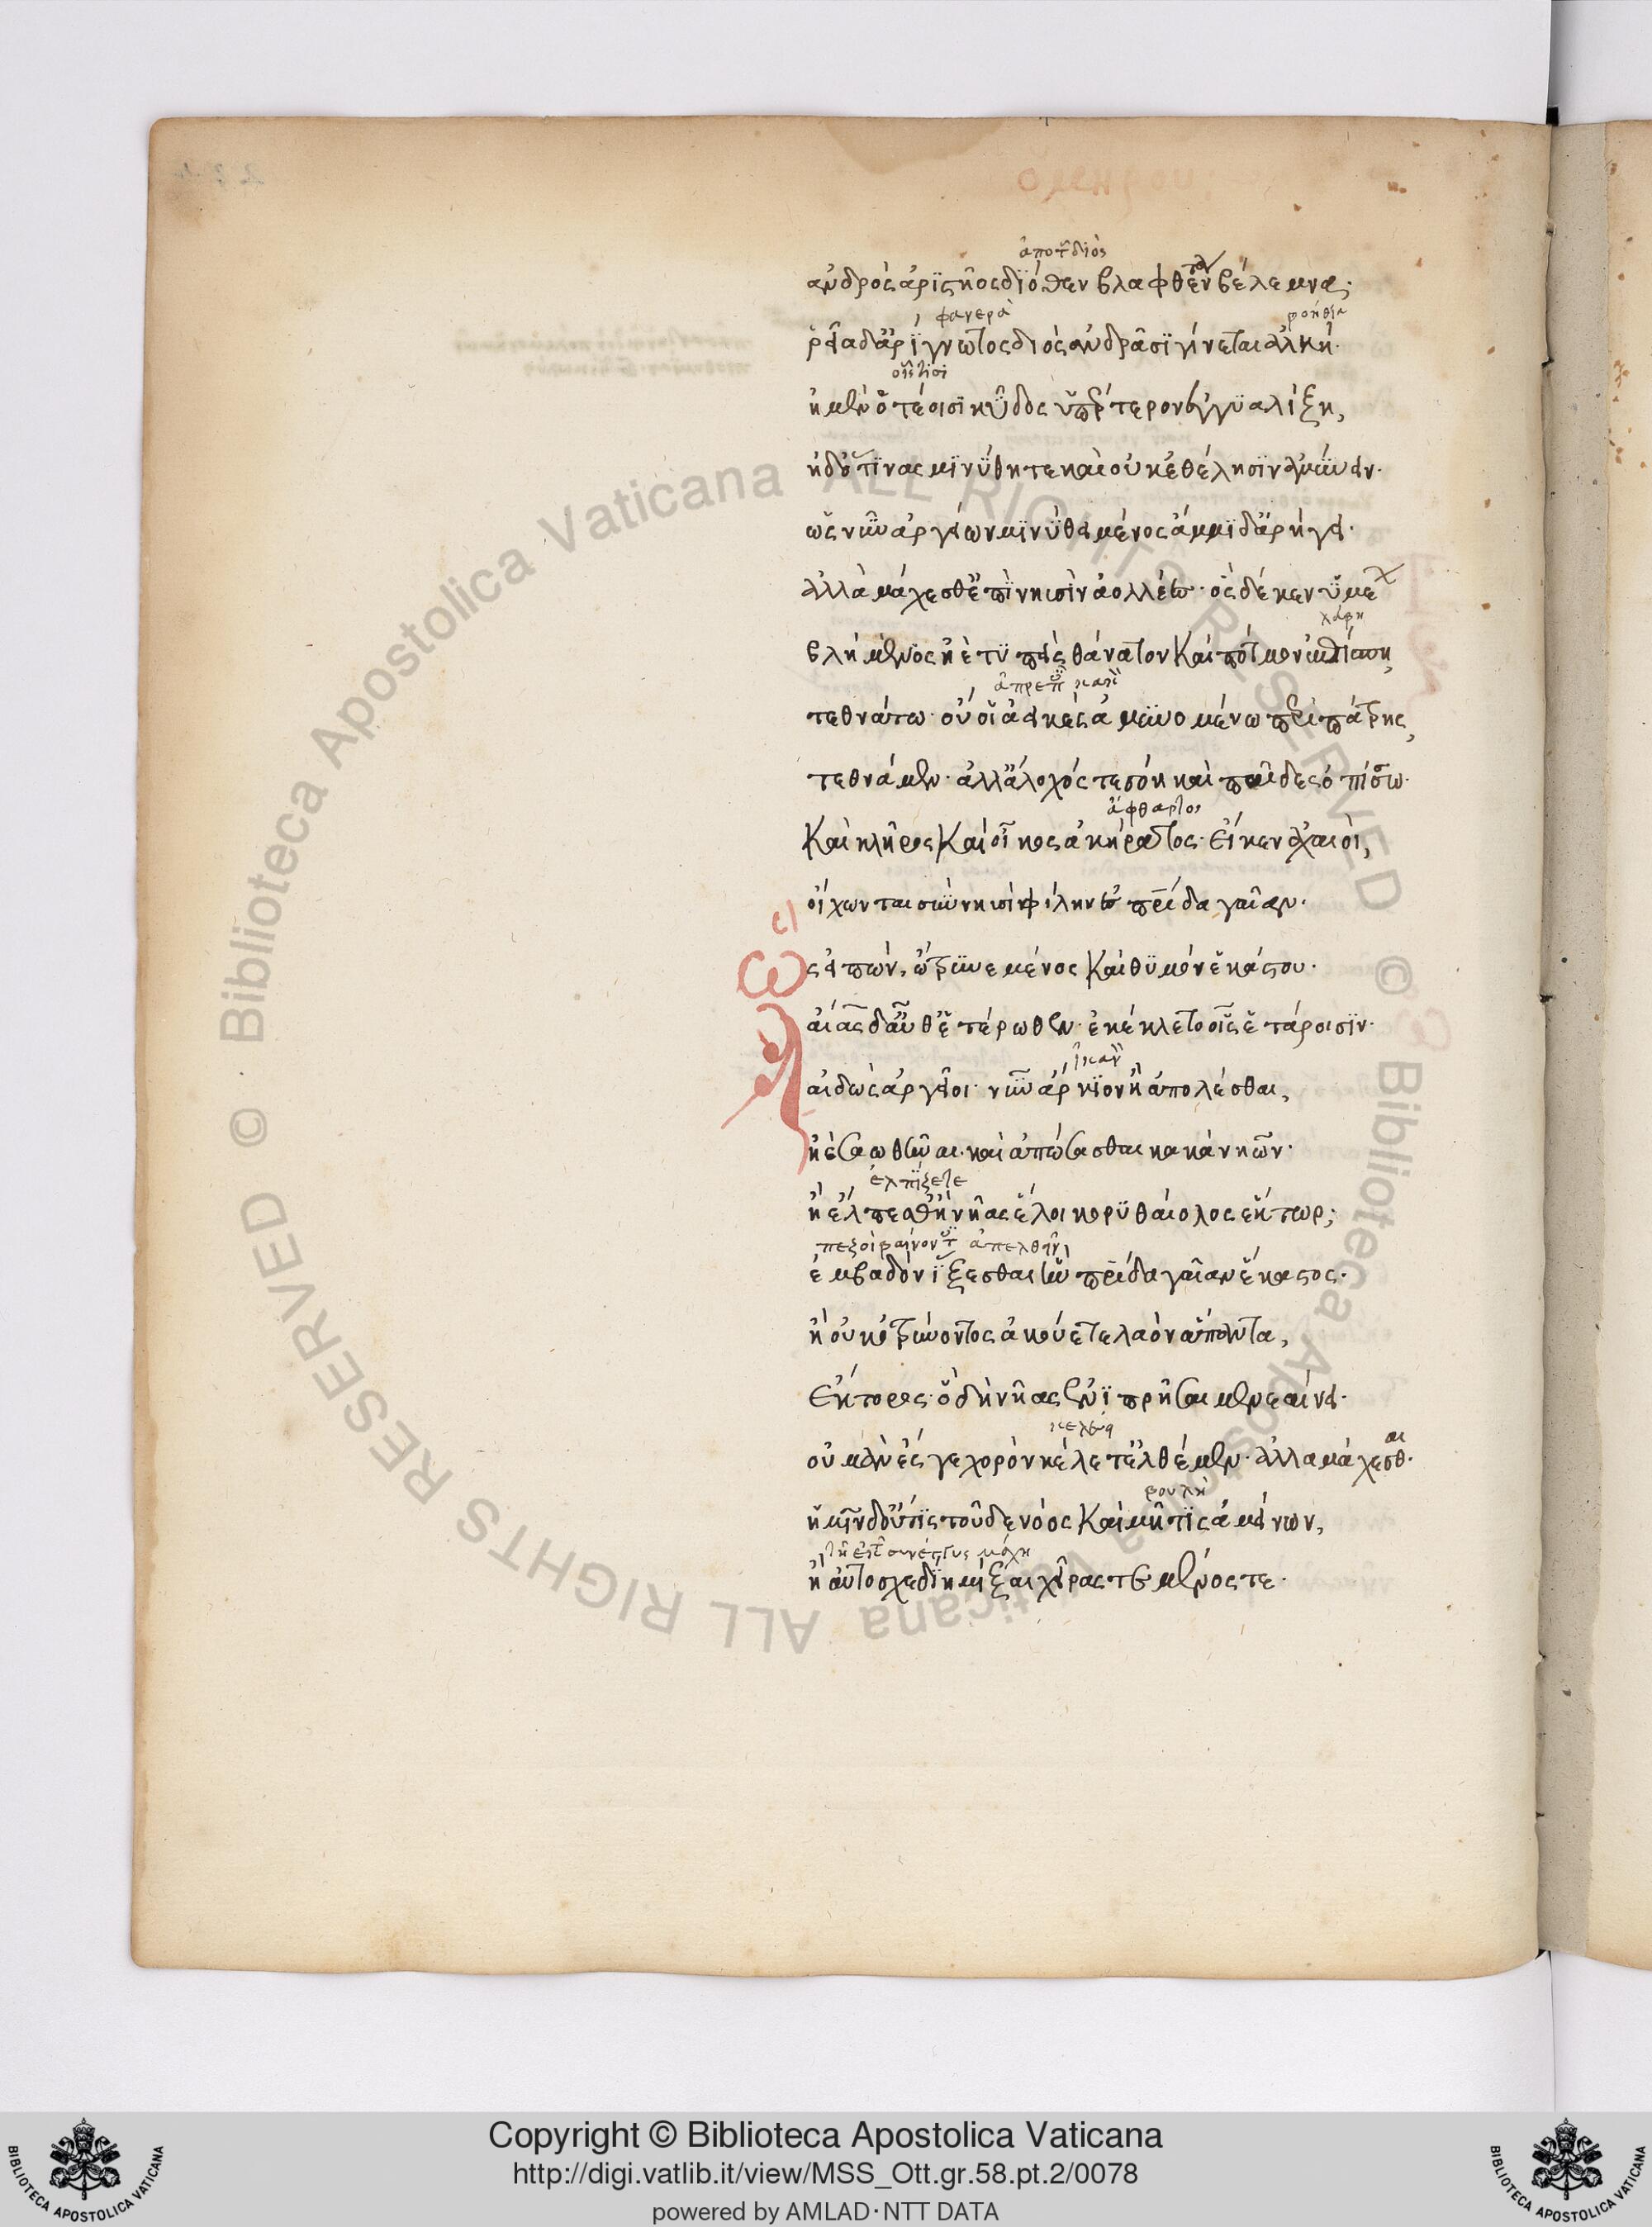 ἀπὸ τοῦ διὸς
ἀνδρὸς ἀριστῆος διόθεν βλαφθέντα βέλεμνα;
φανερὰ βοήθεια
ῥεῖα δ' ἀρίγνωτος διὸς ἀνδράσι γίνεται ἀλκή.
οἷς τισι
ἠμὲν ὁτέοισι κῦδος ὑπέρτερον ἐγγυαλίξη,
ἠδ' ὅτινας μινύθη τε καὶ οὐκ ἐθέλησιν ἀμύνειν.
ὡς νῦν ἀργείων μινύθει μένος ἄμμι δ' ἀρήγει.
ἀλλὰ μάχεσθ' ἐπὶ νηυσὶν ἀολλέες· ὃς δέ κεν ὑμέων
βλήμενος ἠὲ τυπεὶς θάνατον καὶ πότμον ἐπίσπη,
ἀπρεπὲς
τεθνάτω· οὔ οἱ ἀεικὲς ἀμυνομένω περὶ πάτρης,
τεθνάμεν· ἀλλ' ἄλοχός τε σόη καὶ παῖδες ὀπίσσω.
ἄφθαρτος
καὶ κλῆρος καὶ οἶκος ἀκήρατος· εἴ κεν ἀχαιοὶ,
οἴχωνται σὺν νηυσὶ φίλην ἐς πατρίδα γαῖαν.
ὣς εἰπὼν, ὤτρυνε μένος καὶ θυμὸν ἑκάστου.
αἴας δ' αὖθ' ἑτέρωθεν ἐκέκλετο οἷς ἑτάροισιν.
αἰδὼς ἀργεῖοι· νῦν ἄρκιον ἢ ἀπολέσθαι,
ἠὲ σαωθῆναι καὶ ἀπώσασθαι κακὰ νηῶν.
ἐλπίζετε
ἦ ἔλπεσθ' ἢν νῆας ἕλοι κορυθαίολος ἕκτωρ;
πεζοὶ βαίνοντες ἀπελθεῖν
ἐμβαδὸν ἵξεσθαι ἣν πατρίδα γαῖαν ἕκαστος.
ἢ οὐκ ὀτρύνοντος ἀκούετε λαὸν ἅπαντα,
ἕκτορος· ὃ δὴ νῆας ἐνὶ πρῆσαι μενεαίνει.
κελεύει
οὐ μὰν ἔς γε χορὸν κέλετ' ἐλθέμεν· ἀλλὰ μάχεσθαι.
βουλὴ
ἡμῖν δ' οὔτις τοῦδε νόος καὶ μῆτις ἀμείνων,
ἢ αὐτοσχεδίη μίξαι χεῖρας τε μένος τε.
Copyright © Biblioteca Apostolica Vaticana
http://digi.vatlib.it/view/MSS_Ott.gr.58.pt.2/0078
powered by AMLAD·NTT DATA